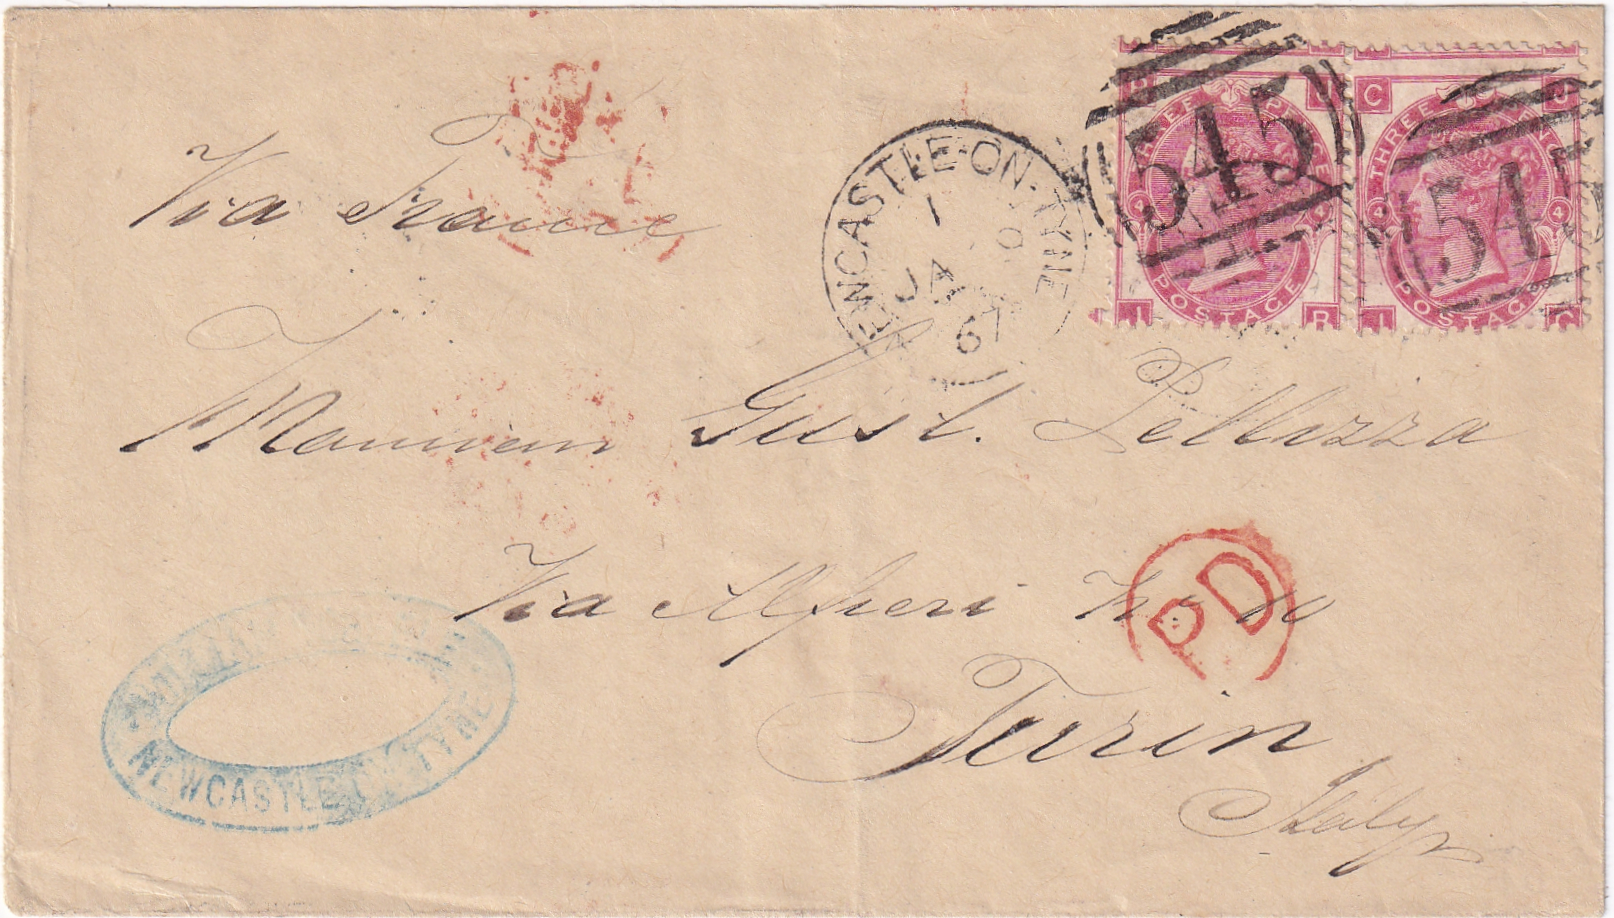 Via France
NEWCASTLE-ON-TYNE
1
JA
67
545
545
THREE PENCE
POSTAGE
R
4
I R
C
THREE PENCE
4
POSTAGE
I C
Gust. Pellizza
Via Alfieri No
PD
Turin
Italy
NEWCASTLE ON TYNE